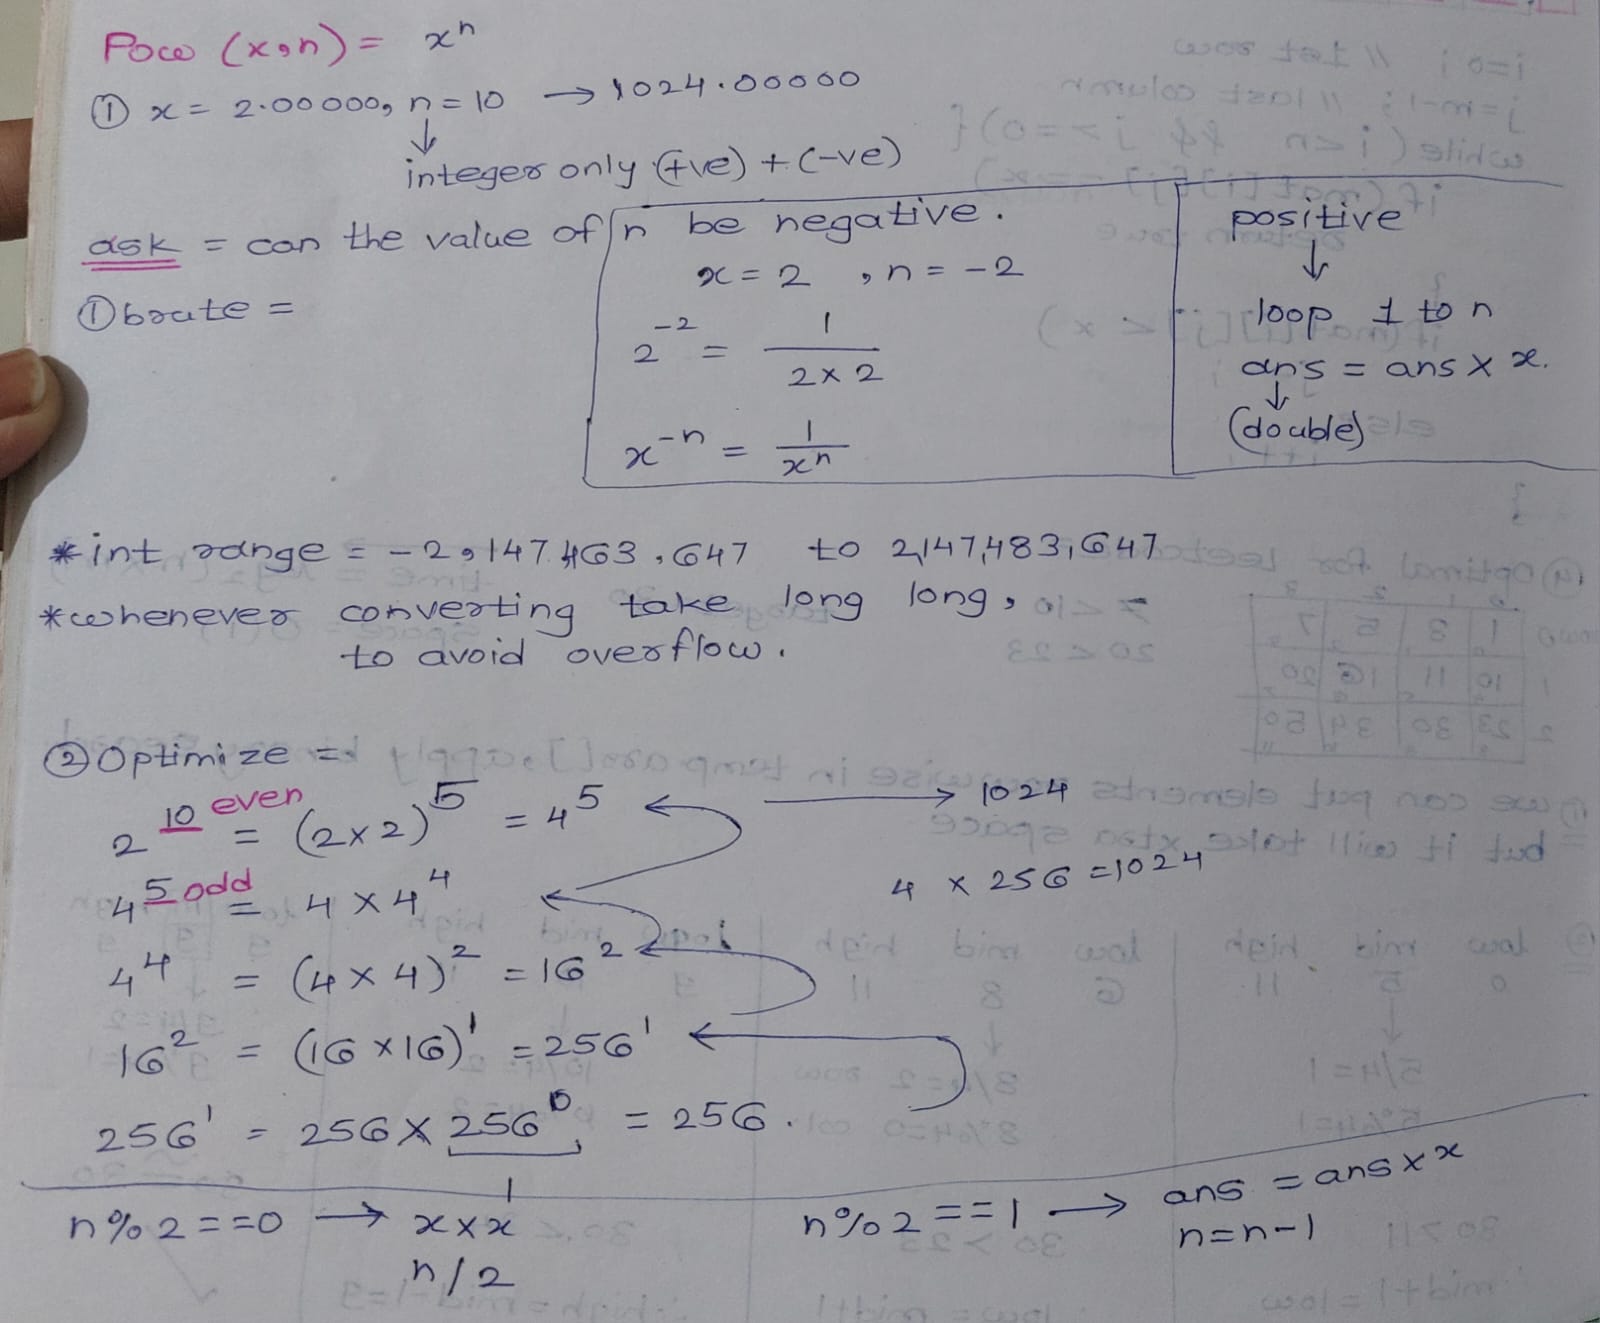 Pow (x,n) = xⁿ
① x = 2.00000, n = 10 → 1024.00000
↓
integer only (+ve) + (-ve)
ask = can the value of n be negative.
x = 2 , n = -2
2⁻² = 1 / 2 × 2
x⁻ⁿ = 1 / xⁿ
positive
↓
loop 1 to n
ans = ans × x.
↓
(double)
① brute =
* int range = -2,147,463,647 to 2,147,483,647
* whenever converting take long long,
to avoid overflow.
② Optimize =
2¹⁰ even = (2×2)⁵ = 4⁵ → 1024
4⁵ odd = 4 × 4⁴
4 × 256 = 1024
4⁴ = (4 × 4)² = 16²
16² = (16 × 16)¹ = 256¹
256¹ = 256 × 256⁰ = 256.
1
n % 2 == 0 → x × x
n / 2
n % 2 == 1 → ans = ans × x
n = n - 1